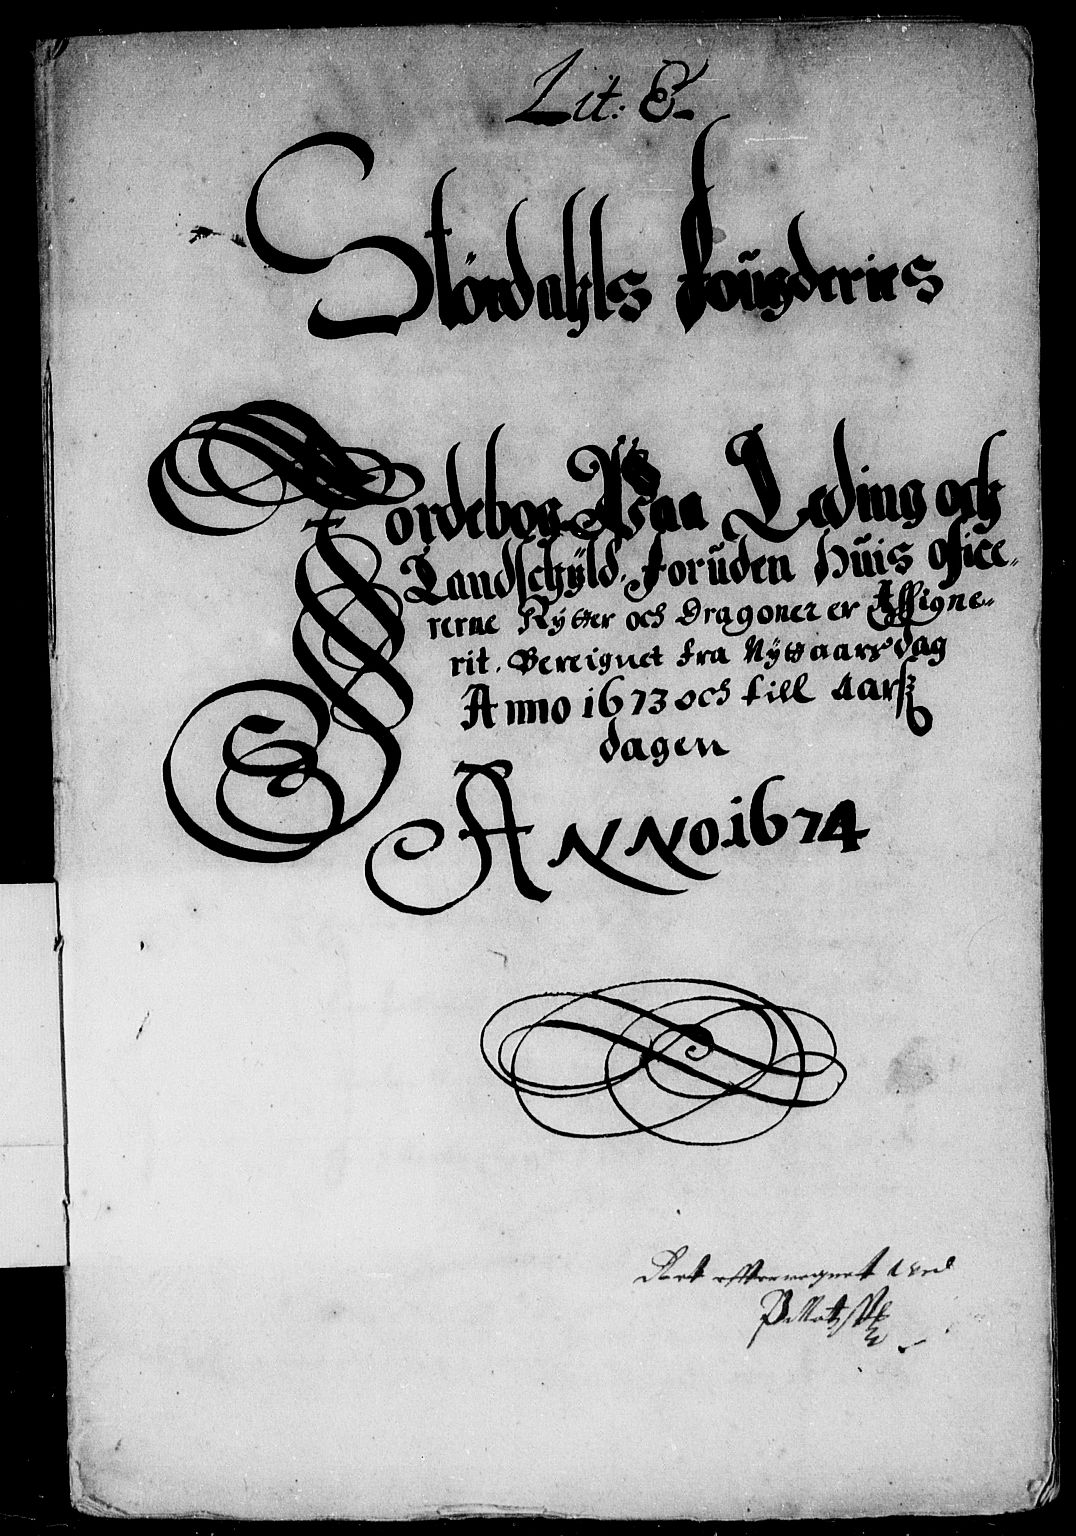 Lit: E
Stördahls fougderies
Jordebog Paa Leding och
Landschyld. foruden huis ofice-
rerne Rytter och Dragoner er Assigne-
rit. Bereignet fra Nyttaarsdag
Anno 1673 och till aarsz
dagen
ANNO. 1674